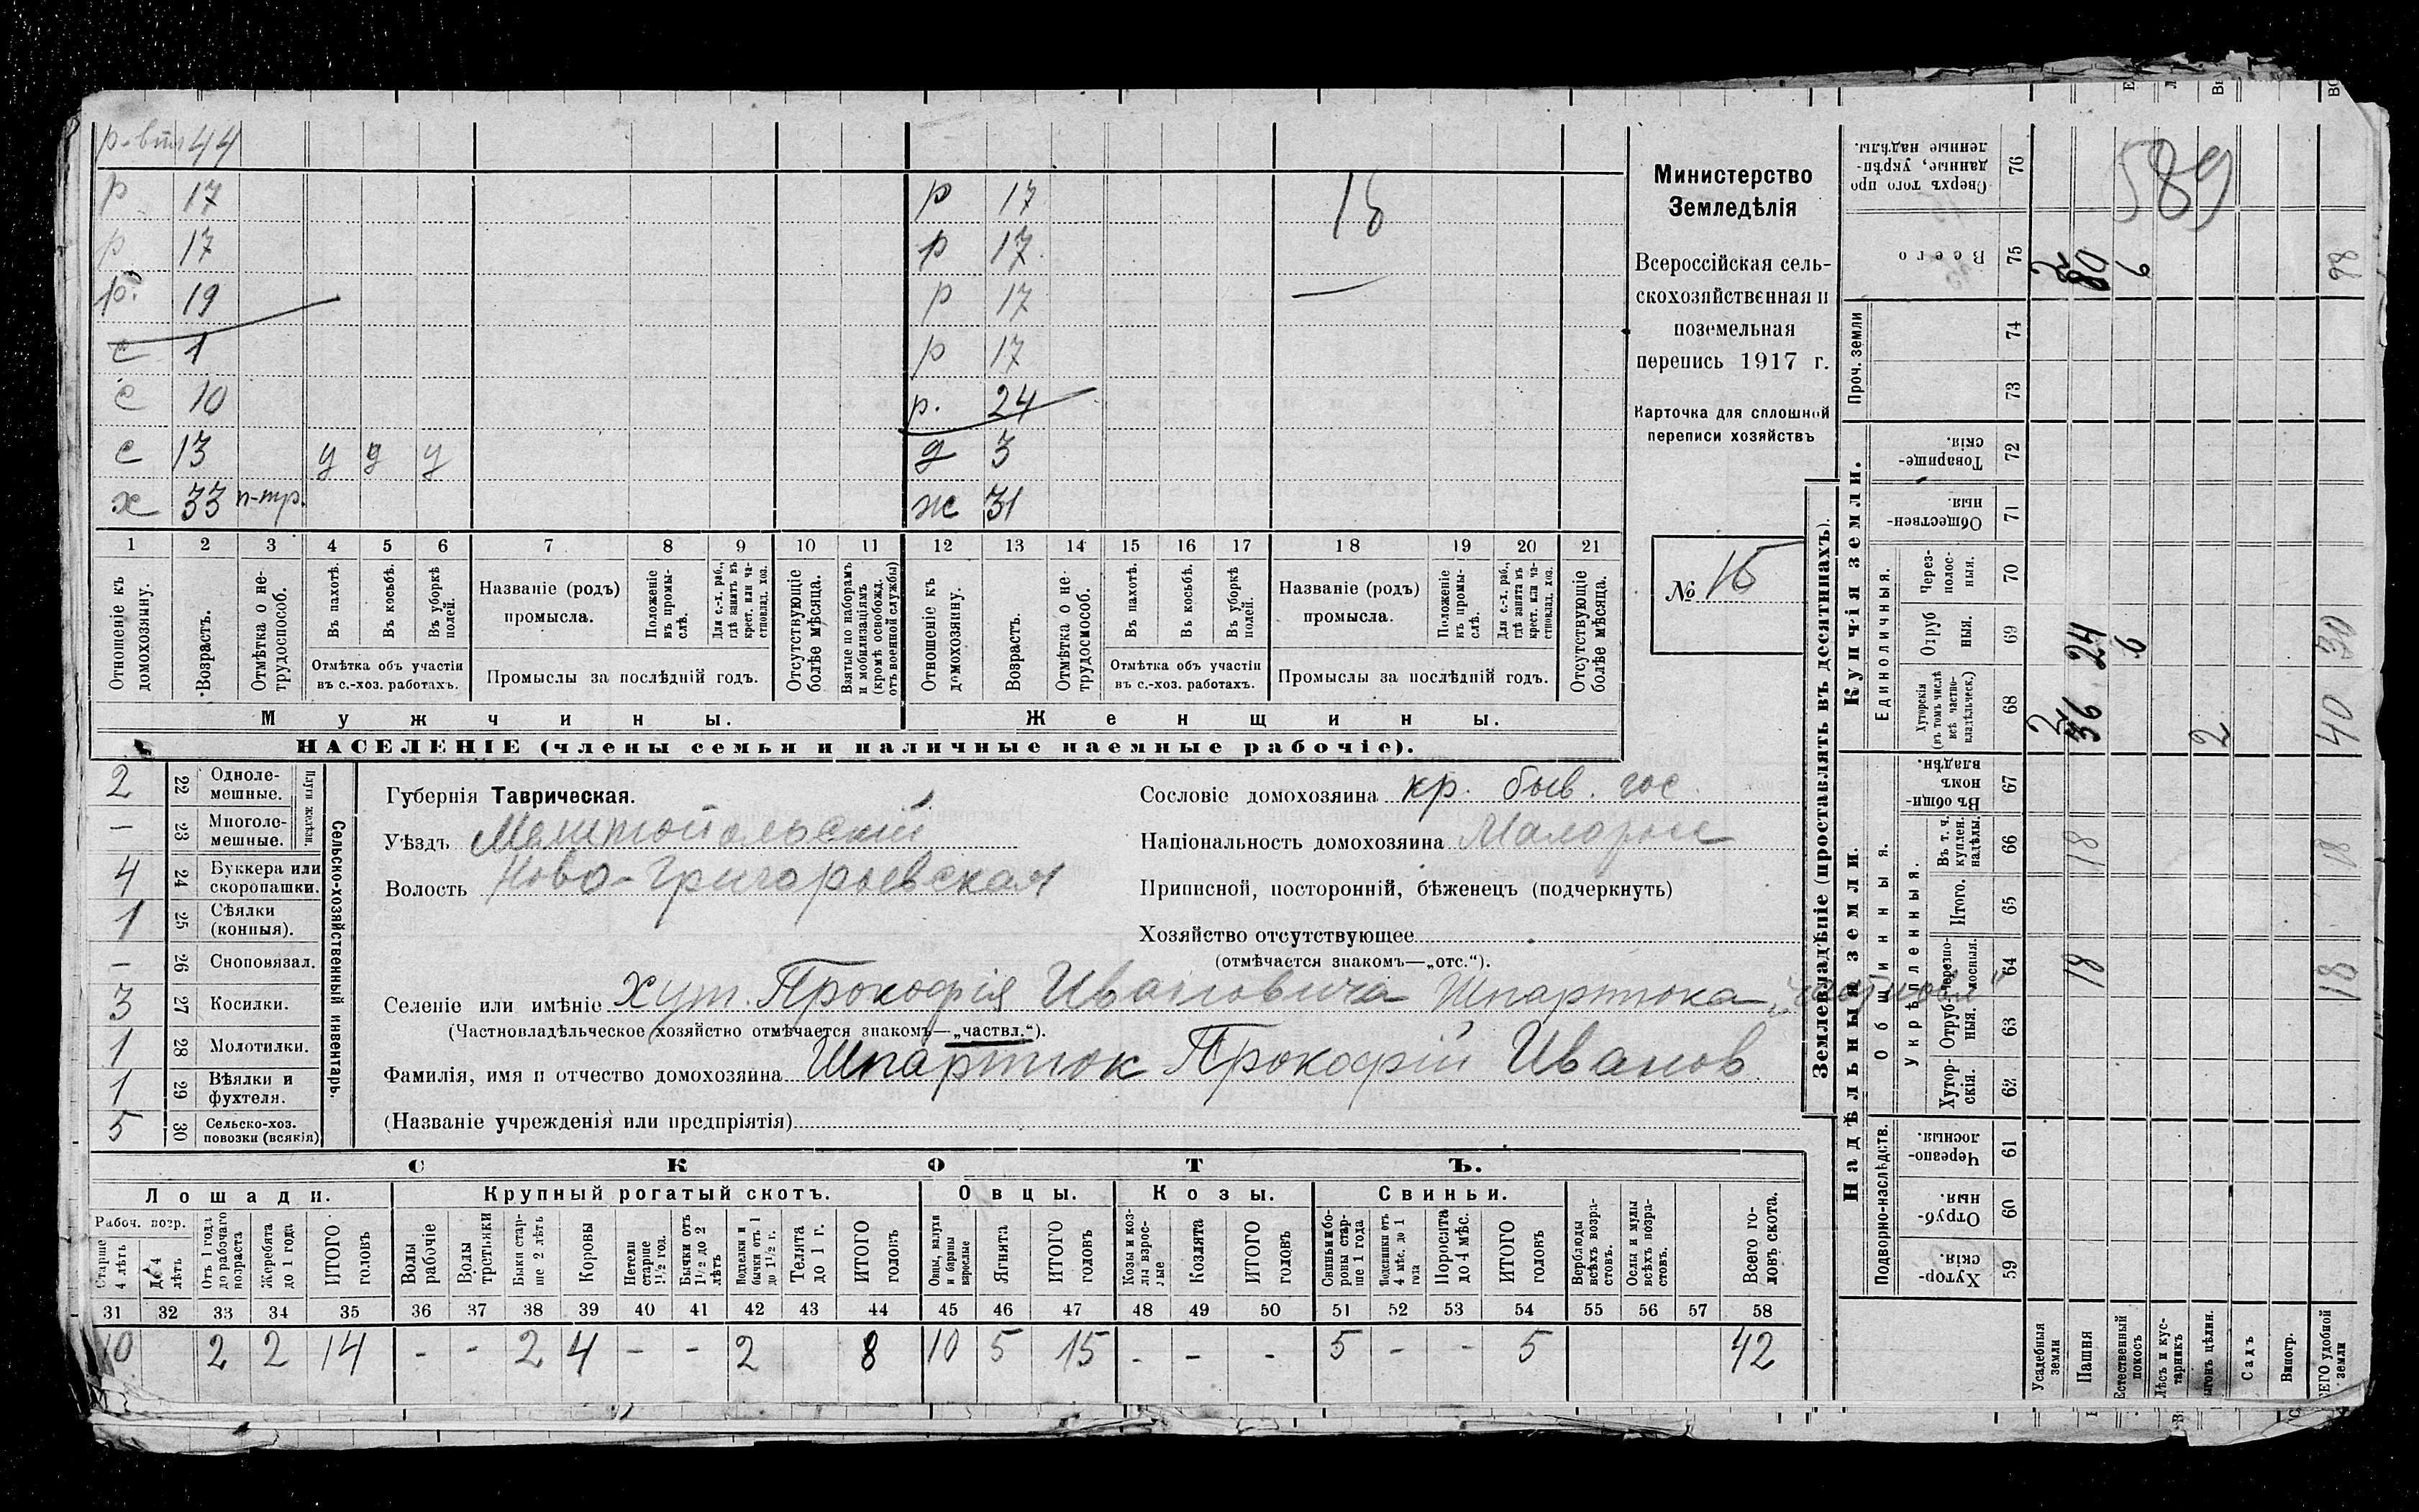 р-вт 44
р 17
р 17
р. 19
с 1
с 10
с 13 у у у
х 33 п-тр.
р 17
р 17
р 17
р 17
р. 24
д 3
ж 31
1 2 3 4 5 6 7 8 9 10 11 12 13 14 15 16 17 18 19 20 21
Отношеніе къ домохозяину.
Возрастъ.
Отмѣтка о нетрудоспособ.
Въ пахотѣ.
Въ косьбѣ.
Въ уборкѣ полей.
Отмѣтка объ участіи въ с.-хоз. работахъ.
Названіе (родъ) промысла.
Положеніе въ промыслѣ.
Для с.-х. раб., гдѣ занятъ въ крест. или частновлад. хоз.
Промыслы за послѣдній годъ.
Отсутствующіе болѣе мѣсяца.
Взятые по наборамъ и мобилизаціямъ (кромѣ освобожд. отъ военной службы)
Отношеніе къ домохозяину.
Возрастъ.
Отмѣтка о нетрудоспособ.
Въ пахотѣ.
Въ косьбѣ.
Въ уборкѣ полей.
Отмѣтка объ участіи въ с.-хоз. работахъ.
Названіе (родъ) промысла.
Положеніе въ промыслѣ.
Для с.-х. раб., гдѣ занята въ крест. или частновлад. хоз.
Промыслы за послѣдній годъ.
Отсутствующіе болѣе мѣсяца.
Мужчины.
Женщины.
НАСЕЛЕНІЕ (члены семьи и наличные наемные рабочіе).
Министерство
Земледѣлія
Всероссійская сель-
скохозяйственная и
поземельная
перепись 1917 г.
Карточка для сплошной
переписи хозяйствъ
№
2 22 Одноле-мешные.
— 23 Многоле-мешные.
Плуги желѣзн.
4 24 Буккера или скоропашки.
1 25 Сѣялки (конныя).
— 26 Сноповязал.
3 27 Косилки.
1 28 Молотилки.
1 29 Вѣялки и фухтеля.
5 30 Сельско-хоз. повозки (всякія)
Сельско-хозяйственный инвентарь.
Губернія Таврическая.
Уѣздъ Мелитопольский
Волость Ново-Григорьевская
Сословіе домохозяина кр. быв. гос.
Національность домохозяина Малорос
Приписной, посторонній, бѣженецъ (подчеркнуть)
Хозяйство отсутствующее
(отмѣчается знакомъ—„отс.“).
Селеніе или имѣніе хут. Прокофія Ивановича Шпартюка
(Частновладѣльческое хозяйство отмѣчается знакомъ—„частвл.“).
Фамилія, имя и отчество домохозяина Шпартюк Прокофій Иванов.
(Названіе учрежденія или предпріятія)
СКОТЪ.
Лошади. Крупный рогатый скотъ. Овцы. Козы. Свиньи.
Рабоч. возр.
Старше 4 лѣтъ
До 4 лѣтъ
Отъ 1 года до рабочаго возраста
Жеребята до 1 года
ИТОГО головъ
Волы рабочіе
Волы третьяки
Быки старше 2 лѣтъ
Коровы
Нетели старше 1½ год.
Бычки отъ 1½ до 2 лѣтъ
Подтелки и бычки отъ 1 до 1½ г.
Телята до 1 г.
ИТОГО головъ
Овцы, валухи и бараны взрослые
Ягнята
ИТОГО головъ
Козы и козлы взрослые
Козлята
ИТОГО головъ
Свиньи боровы старше 1 года
Подсвинки отъ 4 мѣс. до 1 года
Поросята до 4 мѣс.
ИТОГО головъ
Верблюды всѣхъ возрастовъ.
Ослы и мулы всѣхъ возрастовъ.
Всего головъ скота.
31 32 33 34 35 36 37 38 39 40 41 42 43 44 45 46 47 48 49 50 51 52 53 54 55 56 57 58
10 2 2 14 - - 2 4 - - 2 8 10 5 15 - - - 5 - - 5 42
Землевладѣніе (проставлять въ десятинахъ).
Надѣльныя земли.
Купчія земли.
Проч. земли
Подворно-наслѣдств.
Общинныя.
Укрѣпленныя.
Единоличныя.
Хуторскія. 59
Отрубныя. 60
Черезполосныя. 61
Хуторскія. 62
Отрубныя. 63
Черезполосныя. 64
Итого. 65
Въ т. ч. куплен. надѣлы. 66
Въ общинномъ владѣн. 67
Хуторскія (въ томъ числѣ всѣ частновладѣльческ.) 68
Отрубныя. 69
Черезполосныя. 70
Общественныя. 71
Товарищескія. 72
73
74
Всего 75
Сверхъ того проданные, укрѣпленные надѣлы. 76
589
Усадебныя земли 2 2
Пашня 18 18 36 24 80
Естественный покосъ 6 6
Лѣсъ и кустарникъ
2
Садъ
Виногр.
удобной земли 18 18 40 30 98